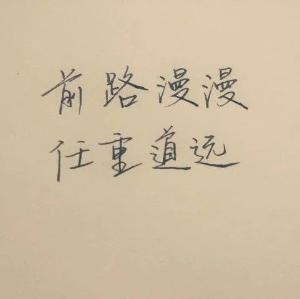 前路漫漫
任重道远